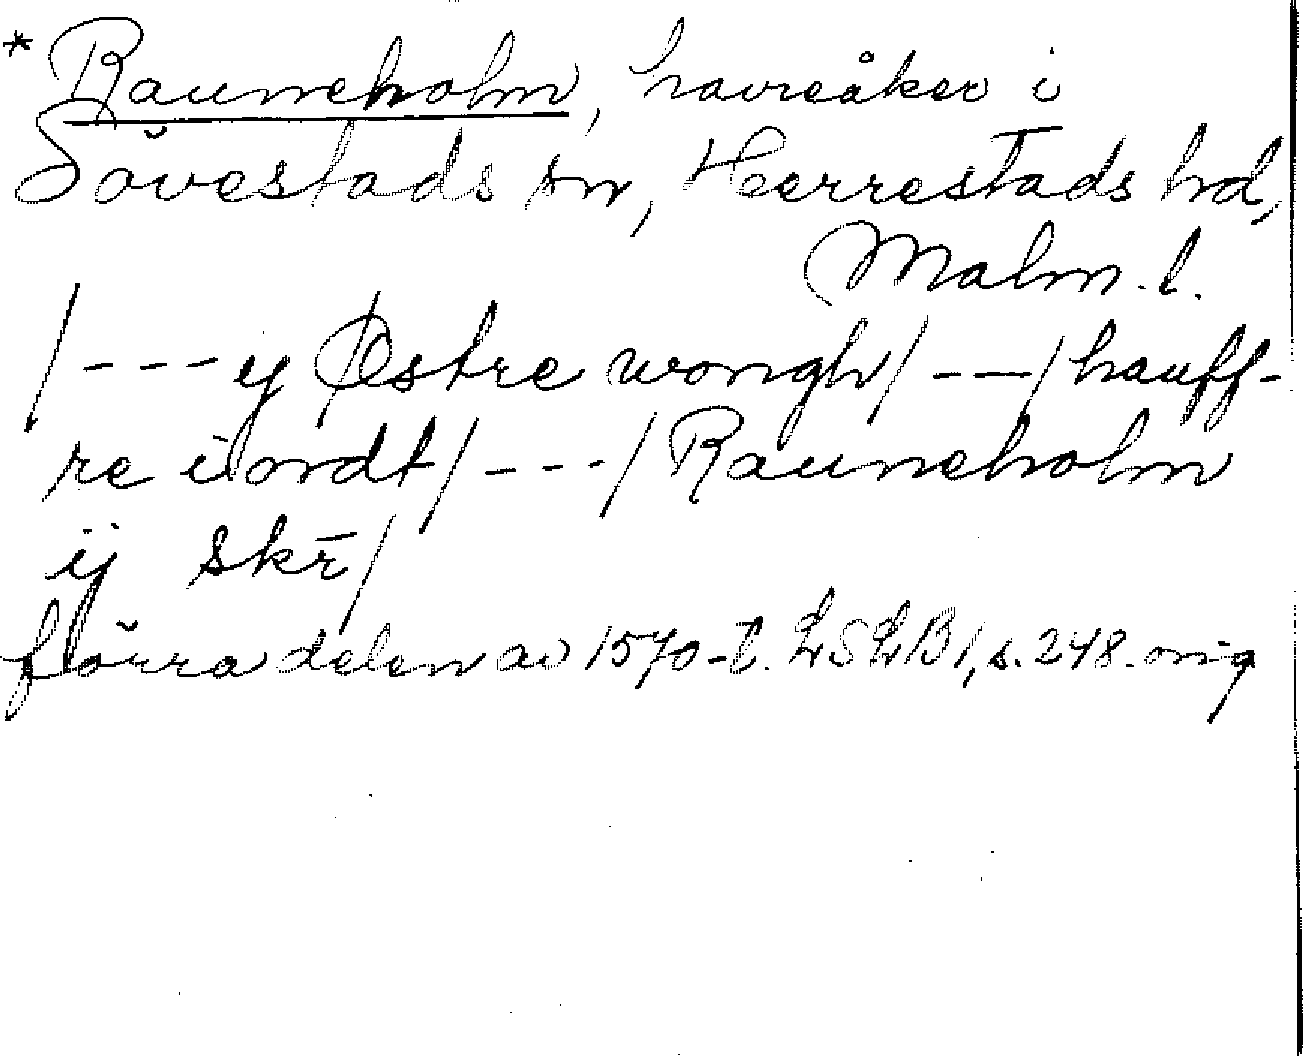 * Rauneholm, havreåker i
Sövestads sn, Herrestads hd,
Malm. l.
/---y Østre wongh/---/hauff-
re iordt/---/Rauneholm
ij skr̄/
förra delen av 1570-t. LSLB1, s. 248. orig